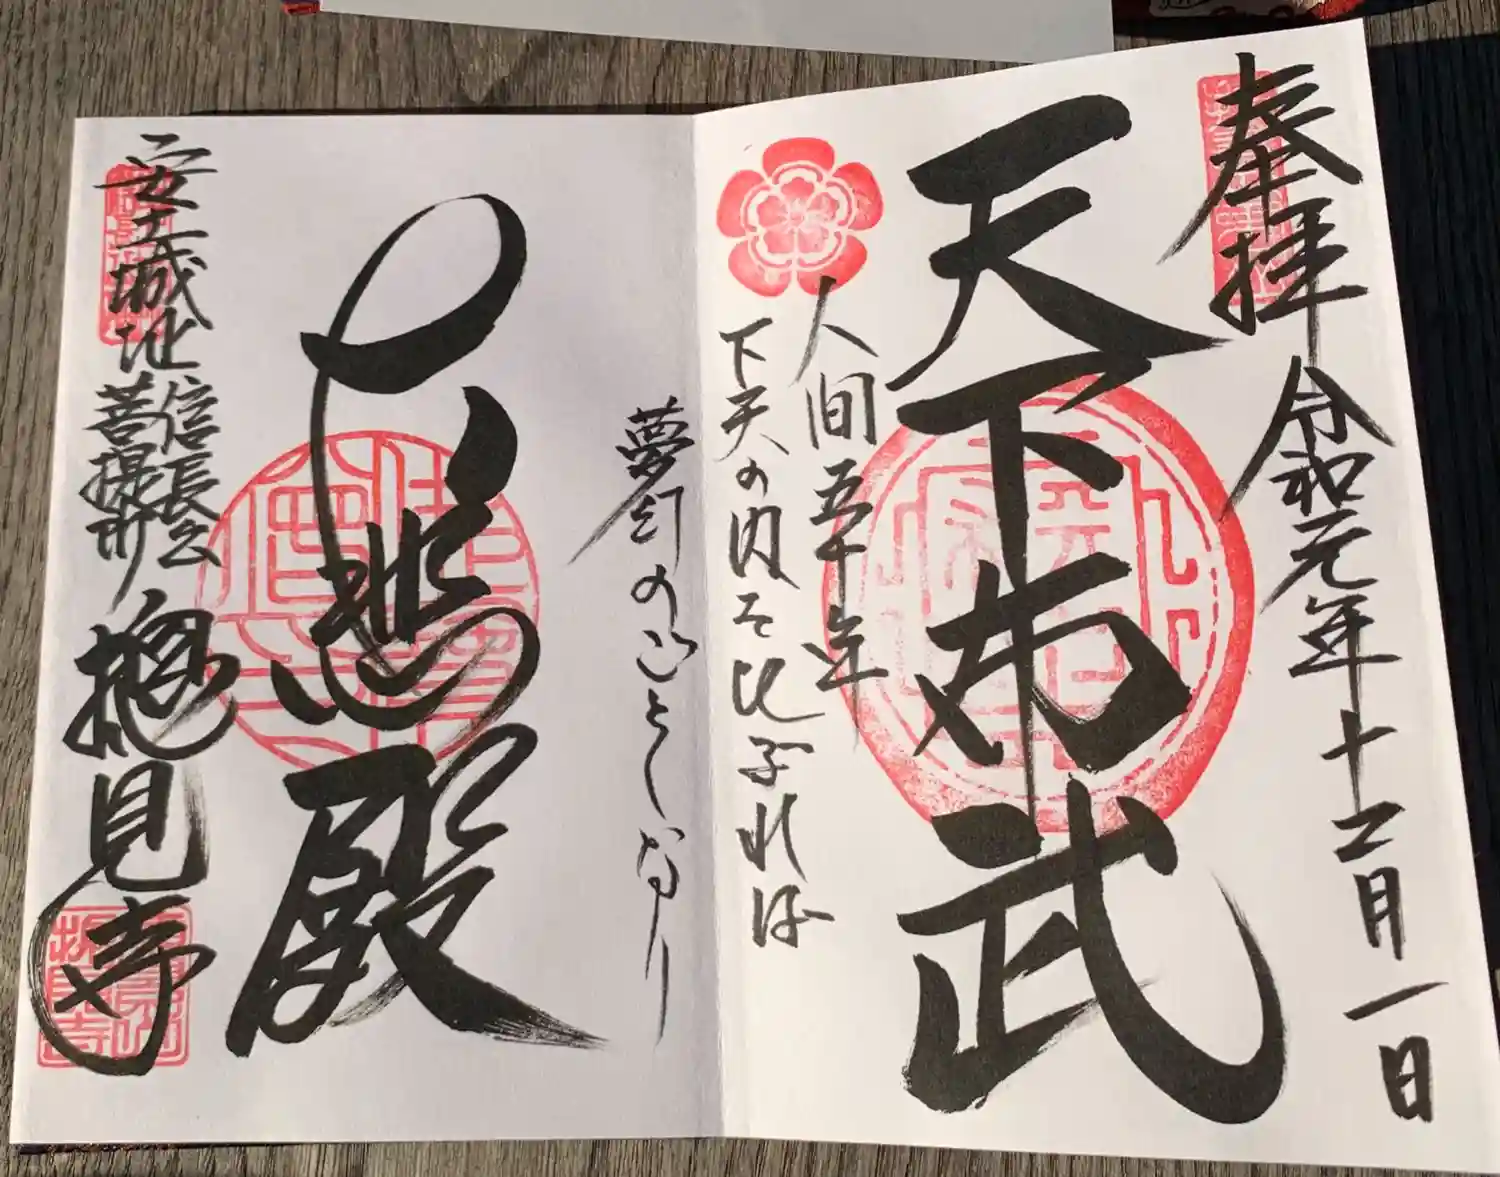 奉拝
令和元年十二月一日
天下布武
人間五十年
下天の内を比ぶれば
夢幻のごとくなり
大悲殿
安土城址
信長公
菩提所
摠見寺